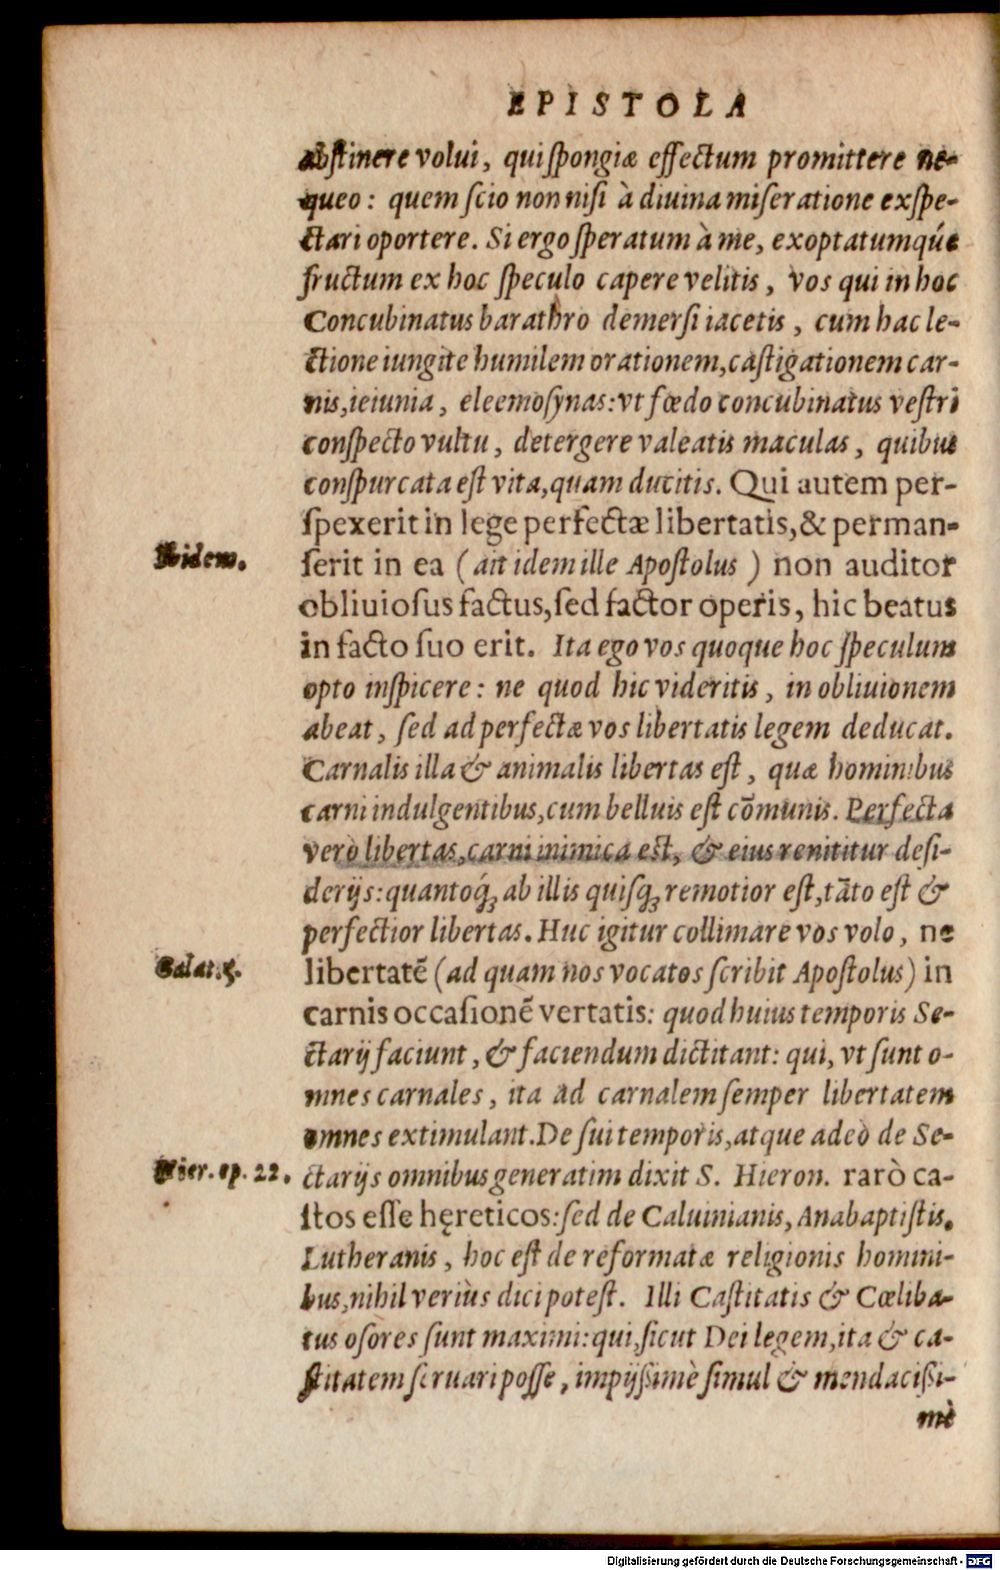 EPISTOLA
abſtinere volui, qui ſpongiæ effectum promittere ne-
queo: quem ſcio non niſi à diuina miſeratione exſpe-
ctari oportere. Si ergo ſperatum à me, exoptatumqúe
fructum ex hoc ſpeculo capere velitis, vos qui in hoc
Concubinatus barathro demerſi iacetis, cum hac le-
ctione iungite humilem orationem, caſtigationem car-
nis, ieiunia, eleemoſynas: vt fœdo concubinatus veſtri
conſpecto vultu, detergere valeatis maculas, quibus
conſpurcata eſt vita, quam ducitis. Qui autem per-
ſpexerit in lege perfectæ libertatis, & perman-
Ibidem.
ſerit in ea (ait idem ille Apoſtolus) non auditor
obliuioſus factus, ſed factor operis, hic beatus
in facto ſuo erit. Ita ego vos quoque hoc ſpeculum
opto inſpicere: ne quod hic videritis, in obliuionem
abeat, ſed ad perfectæ vos libertatis legem deducat.
Carnalis illa & animalis libertas eſt, quæ hominibus
carni indulgentibus, cum belluis eſt cōmunis. Perfecta
verò libertas, carni inimica eſt, & eius renititur deſi-
derijs: quantoq́ꝫ ab illis quiſqꝫ remotior eſt, tāto eſt &
perfectior libertas. Huc igitur collimare vos volo, ne
Galat. 5.
libertatē (ad quam nos vocatos ſcribit Apoſtolus) in
carnis occaſionē vertatis: quod huius temporis Se-
ctarij faciunt, & faciendum dictitant: qui, vt ſunt o-
mnes carnales, ita ad carnalem ſemper libertatem
omnes extimulant. De ſui temporis, atque adeò de Se-
Hier. ep. 22.
ctarijs omnibus generatim dixit S. Hieron. rarò ca-
ſtos eſſe hęreticos: ſed de Caluinianis, Anabaptiſtis,
Lutheranis, hoc eſt de reformatæ religionis homini-
bus, nihil veriùs dici poteſt. Illi Caſtitatis & Cœliba-
tus oſores ſunt maximi: qui, ſicut Dei legem, ita & ca-
ſtitatem ſeruari poſſe, impijſsimè ſimul & mendaciſsi-
mè
Digitalisierung gefördert durch die Deutsche Forschungsgemeinschaft - DFG